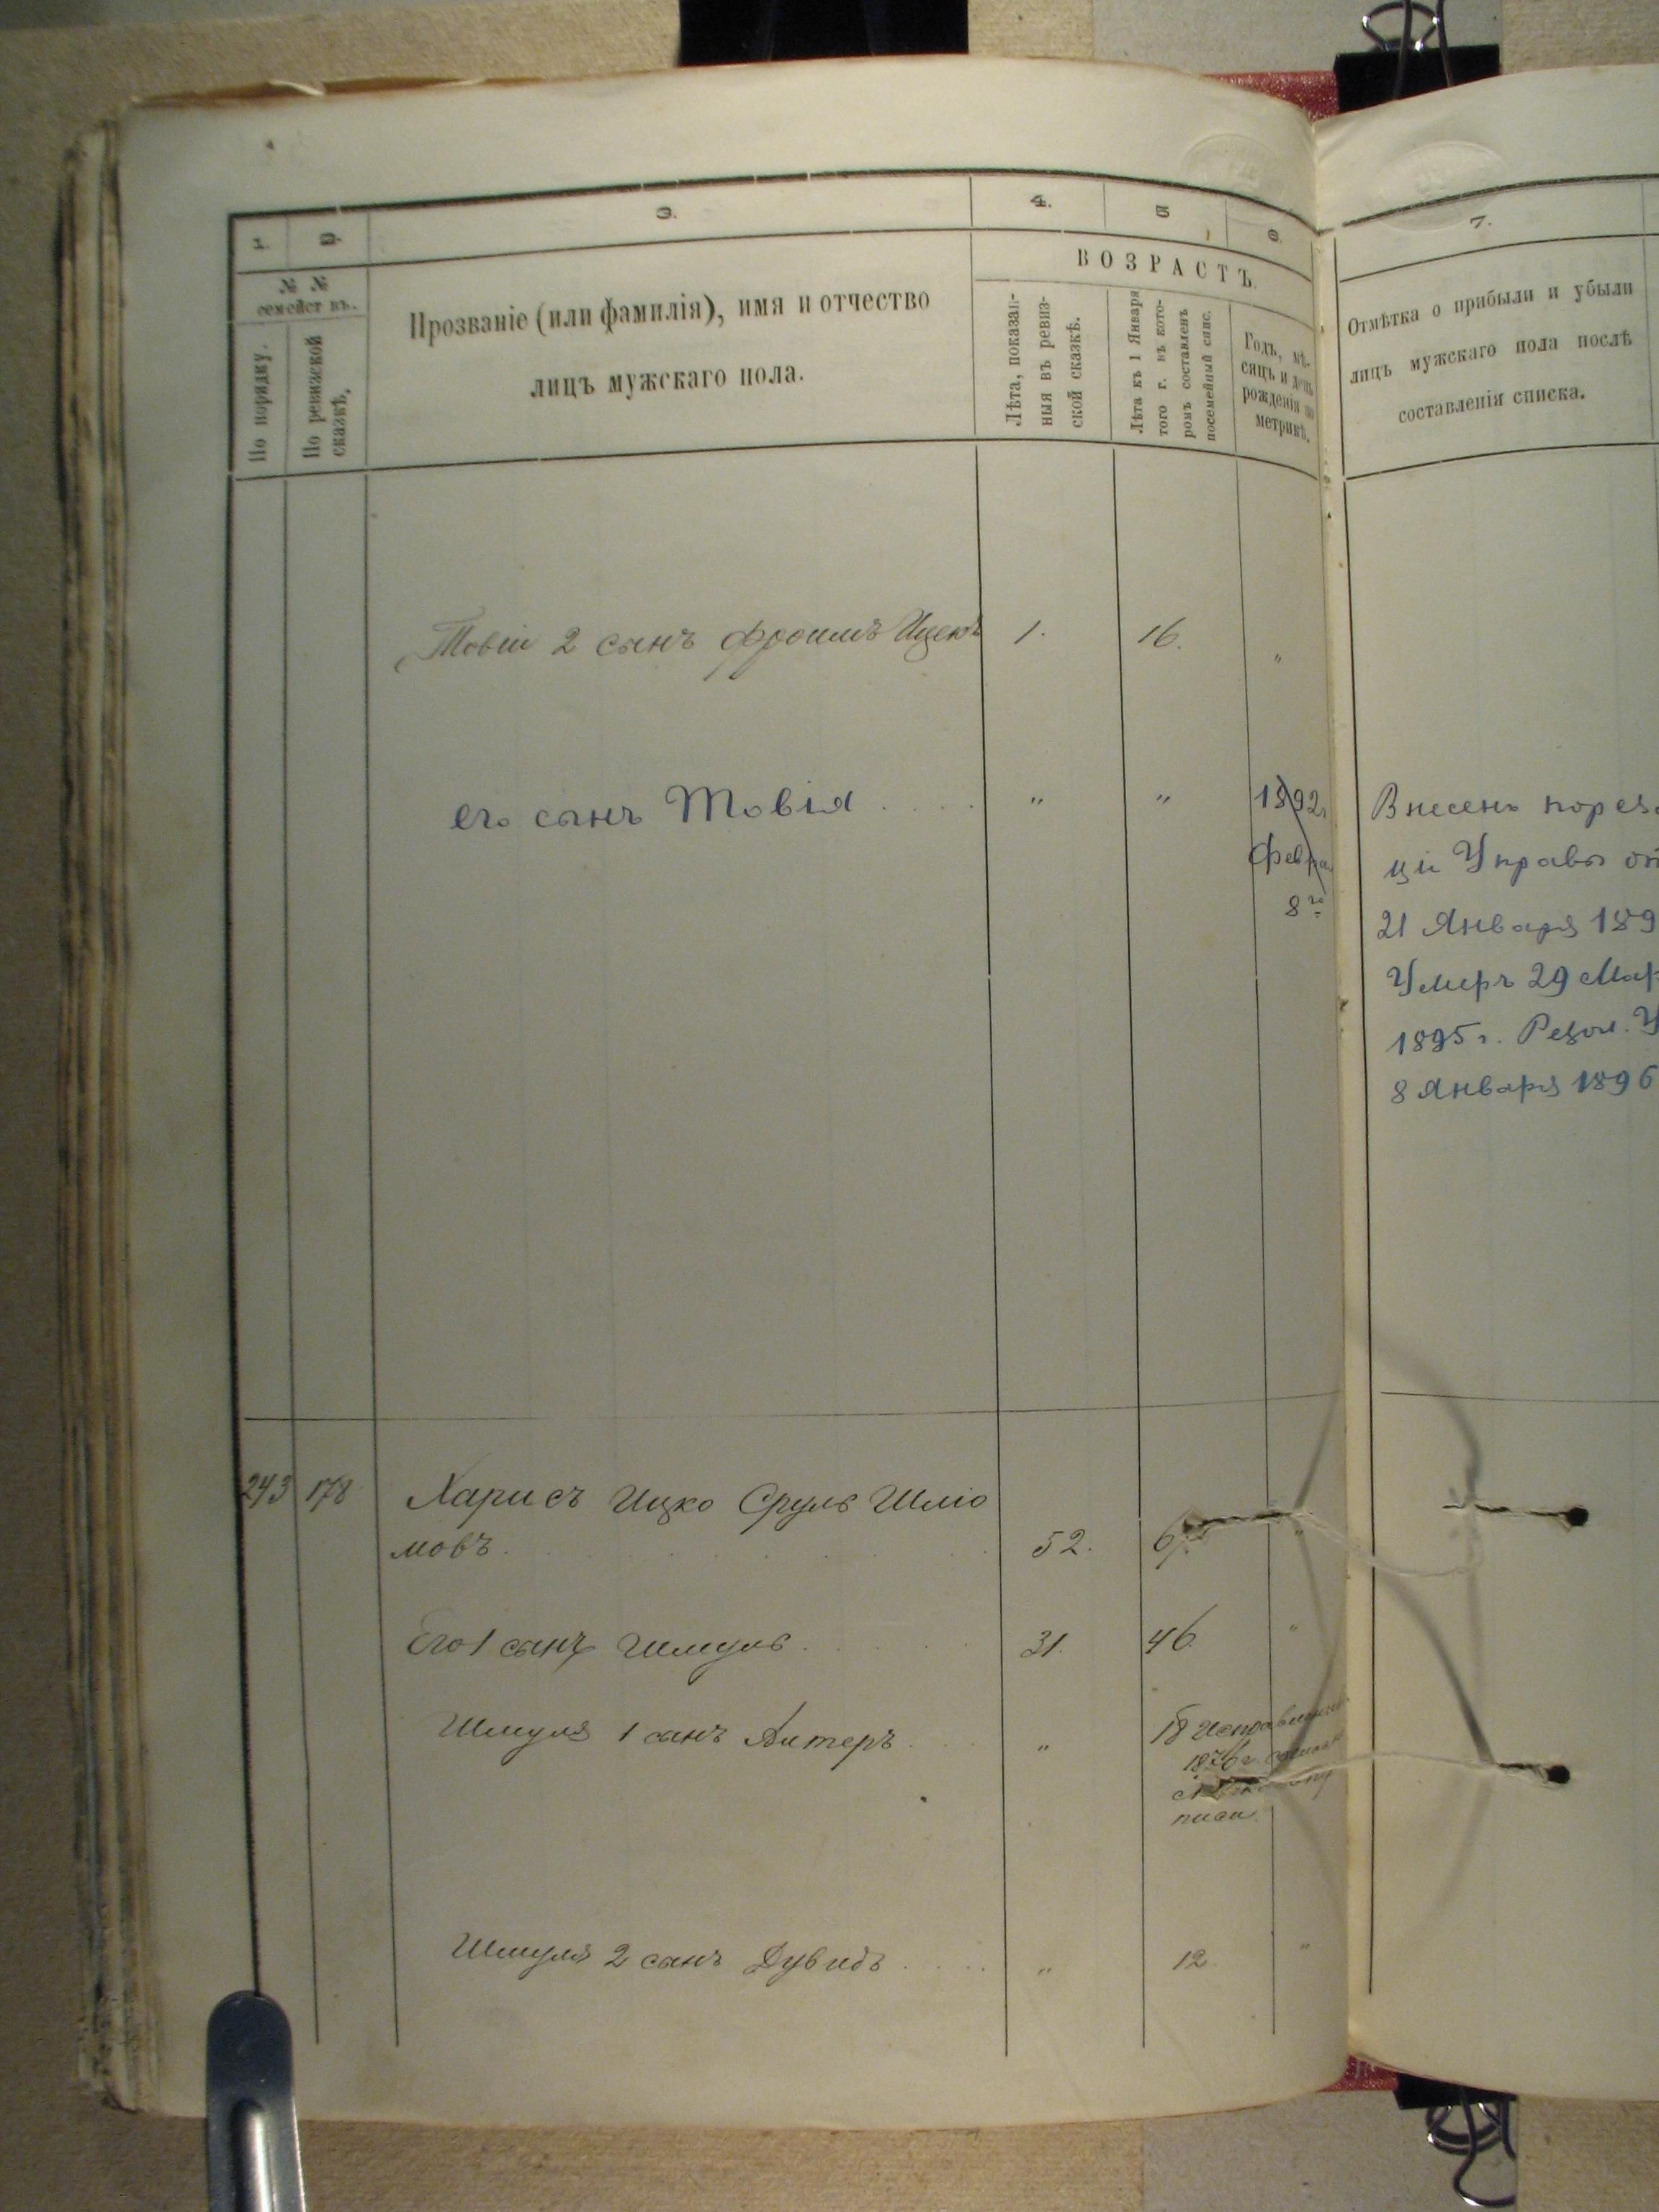 1. 2. 3. 4. 5 6. 7.
№ №
семейст въ.
По порядку.
По ревизской
сказкѣ.
Прозваніе (или фамилія), имя и отчество
лицъ мужскаго пола.
ВОЗРАСТЪ.
Лѣта, показан-
ныя въ ревиз-
ской сказкѣ.
Лѣта къ 1 Января
того г. въ кото-
ромъ составленъ
посемейный спис.
Годъ, мѣ-
сяцъ и день
рожденія по
метрикѣ.
Отмѣтка о прибыли и убыли
лицъ мужскаго пола послѣ
составленія списка.
Товіи 2 сынъ Фроимъ Ицекъ 1. 16. "
его сынъ Товія " " 1892г
Февра
8го
Внесенъ по рез
ціи Управы от
21 Января 189
Умеръ 29 Мар
1895 г. Резол. У
8 Января 1896
243 178 Харисъ Ицко Сруль Шліо
мовъ 52. 67. "
Его 1 сынъ Шмуль 31. 46. "
Шмуля 1 сынъ Алтеръ " 18
1876 г.
Шмуля 2 сынъ Дувидъ " 12. "